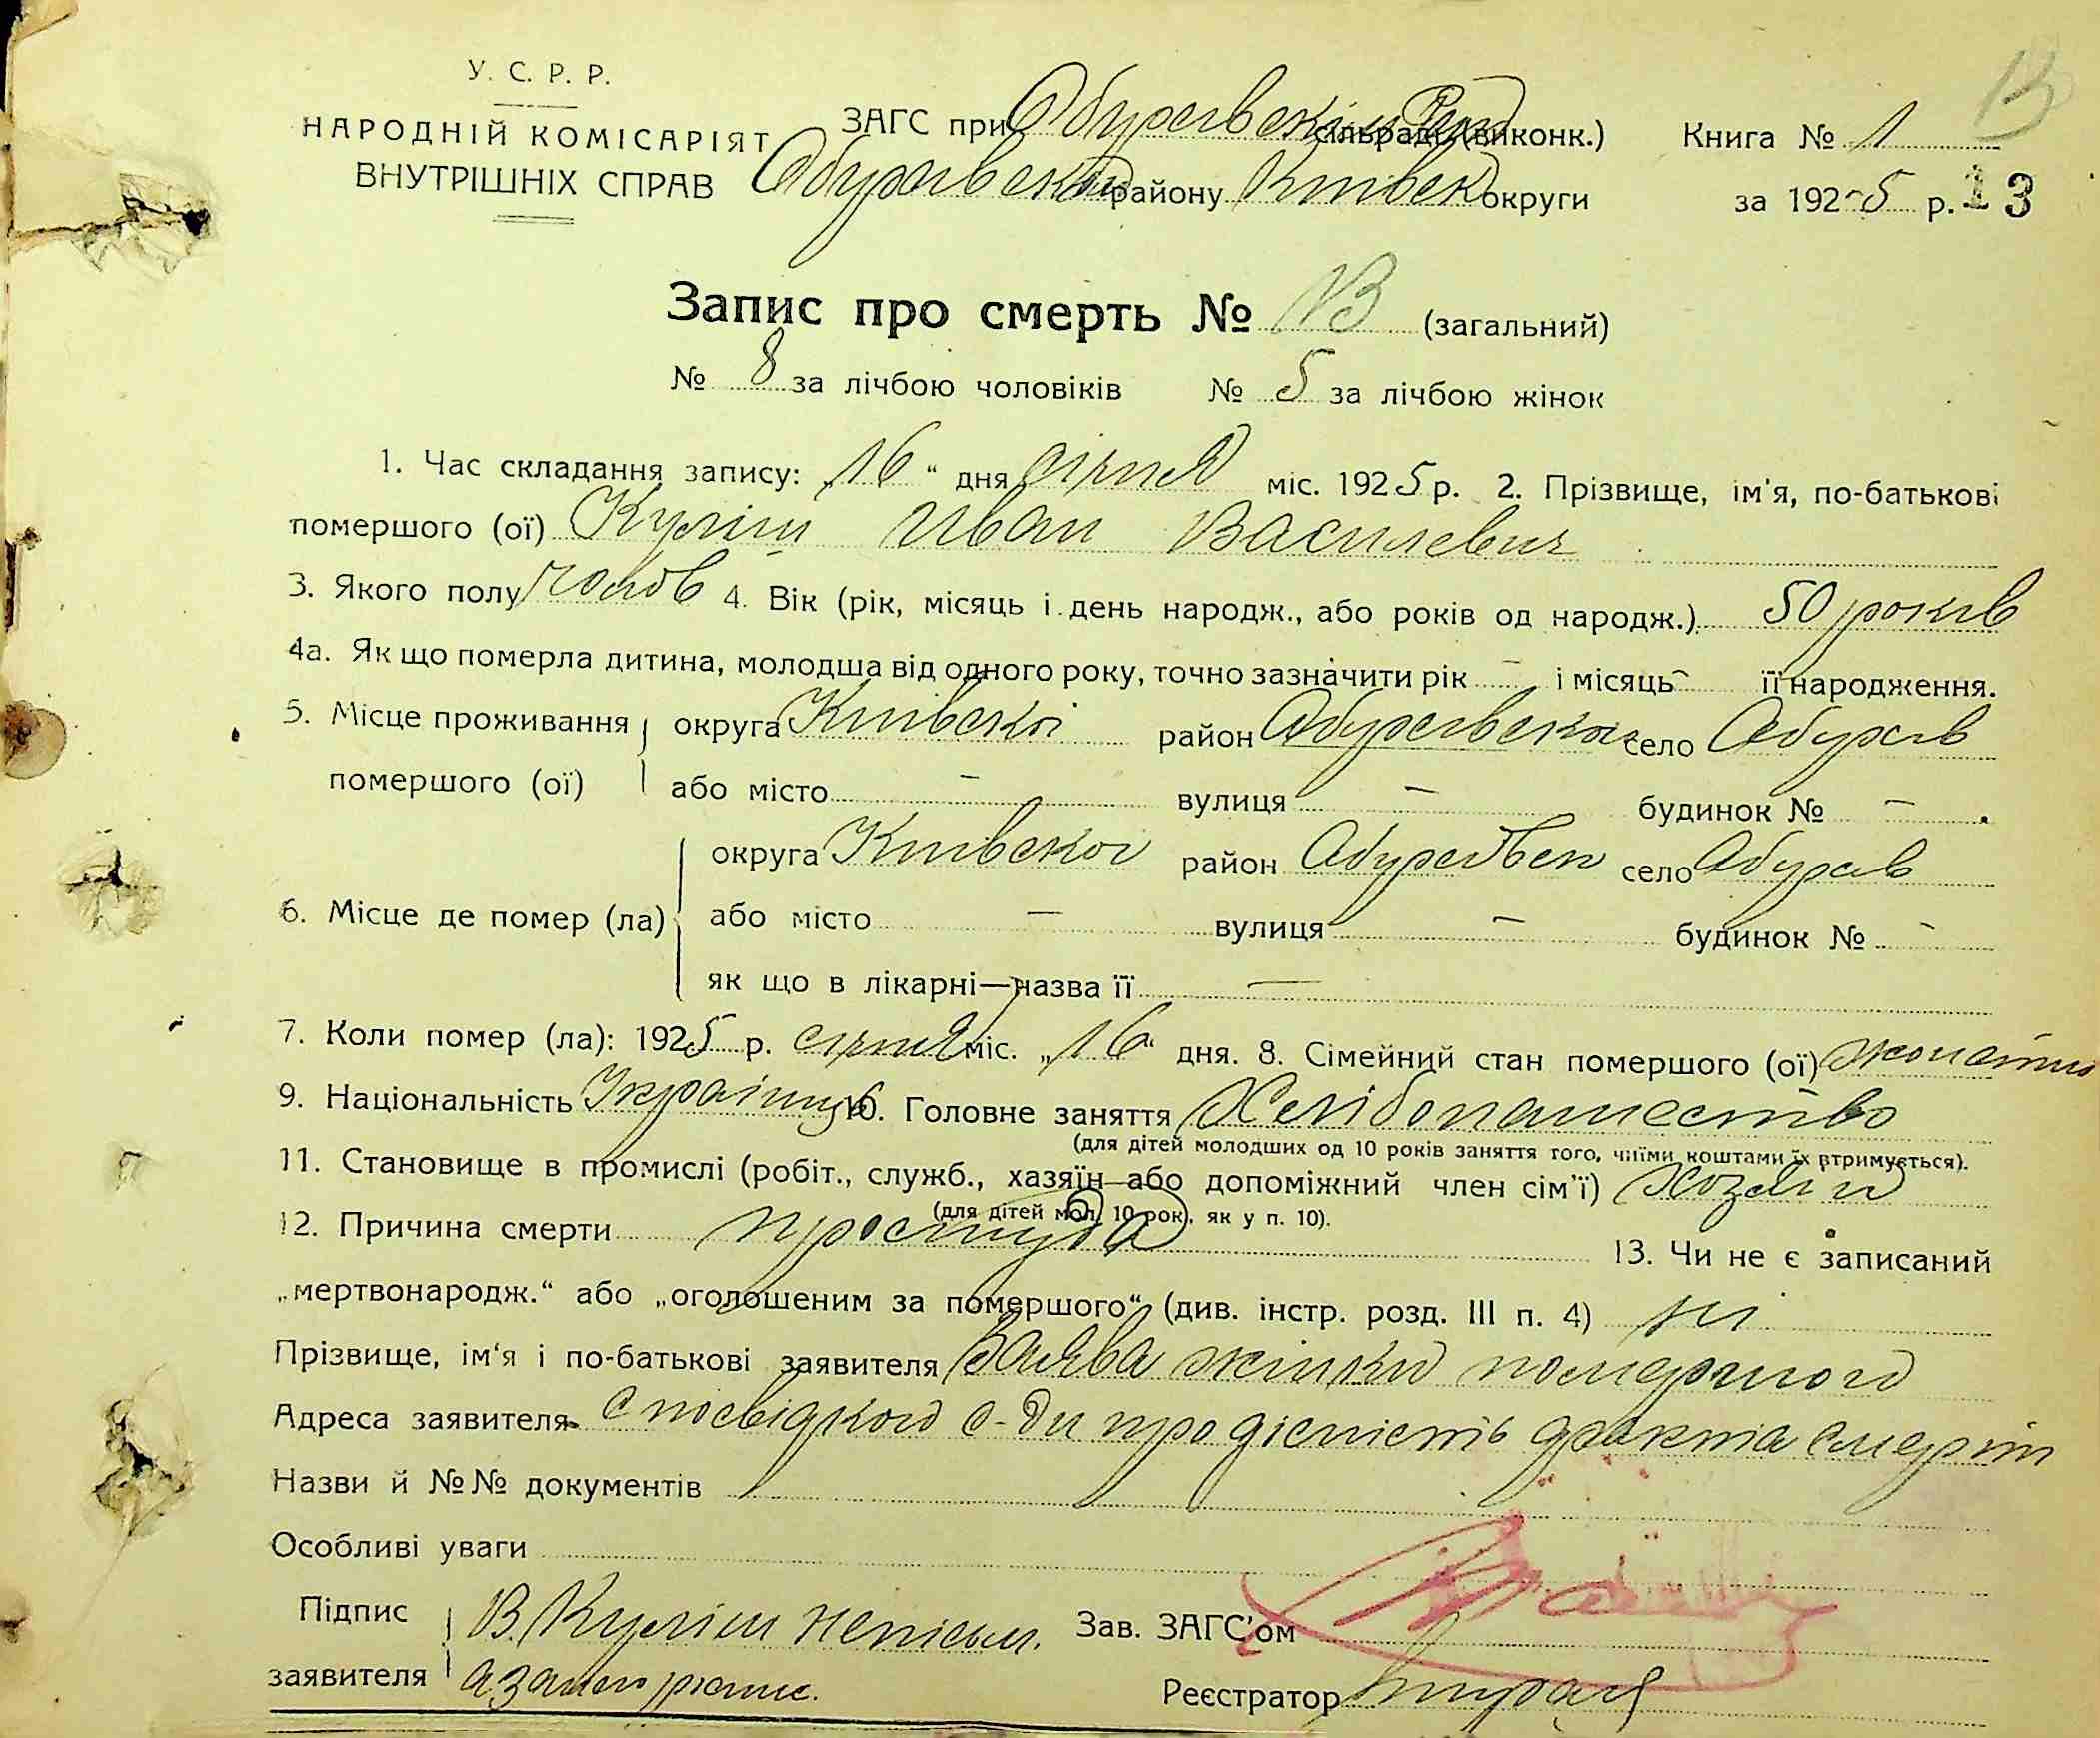 13
У. С. Р. Р.
НАРОДНІЙ КОМІСАРІЯТ
ВНУТРІШНІХ СПРАВ
ЗАГС при сільраді (виконк.)
району Київськ округи
Книга № 1
за 1925 р. 13
Запис про смерть № 13 (загальний)
№ 8 за лічбою чоловіків № 5 за лічбою жінок
1. Час складання запису: „16“ дня січня міс. 1925 р. 2. Прізвище, ім'я, по-батькові
помершого (ої) Куліш Иван Василевич
3. Якого полу чолов 4. Вік (рік, місяць і день народж., або років од народж.) 50 років
4а. Як що померла дитина, молодша від одного року, точно зазначити рік — і місяць — її народження.
5. Місце проживання округа Київскоі район село
помершого (ої) або місто — вулиця — будинок № —
округа Київскоі район село
6. Місце де помер (ла) або місто — вулиця — будинок № —
як що в лікарні—назва її —
7. Коли помер (ла): 1925 р. січня міс. „16“ дня. 8. Сімейний стан помершого (ої)
9. Національність Украінець 10. Головне заняття Хлібопашество
(для дітей молодших од 10 років заняття того, чиїми коштами їх втримується).
11. Становище в промислі (робіт., служб., хазяїн або допоміжний член сім'ї) Хозяін
(для дітей мол. 10 рок., як у п. 10).
12. Причина смерти простуда 13. Чи не є записаний
„мертвонародж.“ або „оголошеним за помершого“ (див. інстр. розд. III п. 4) ні
Прізвище, ім'я і по-батькові заявителя Заява жінки помершого
Адреса заявителя с посвідкою про дісність факта смерти
Назви й №№ документів
Особливі уваги
Підпис В. Куліш неписьм.
заявителя а за него
Зав. ЗАГС'ом
Реєстратор